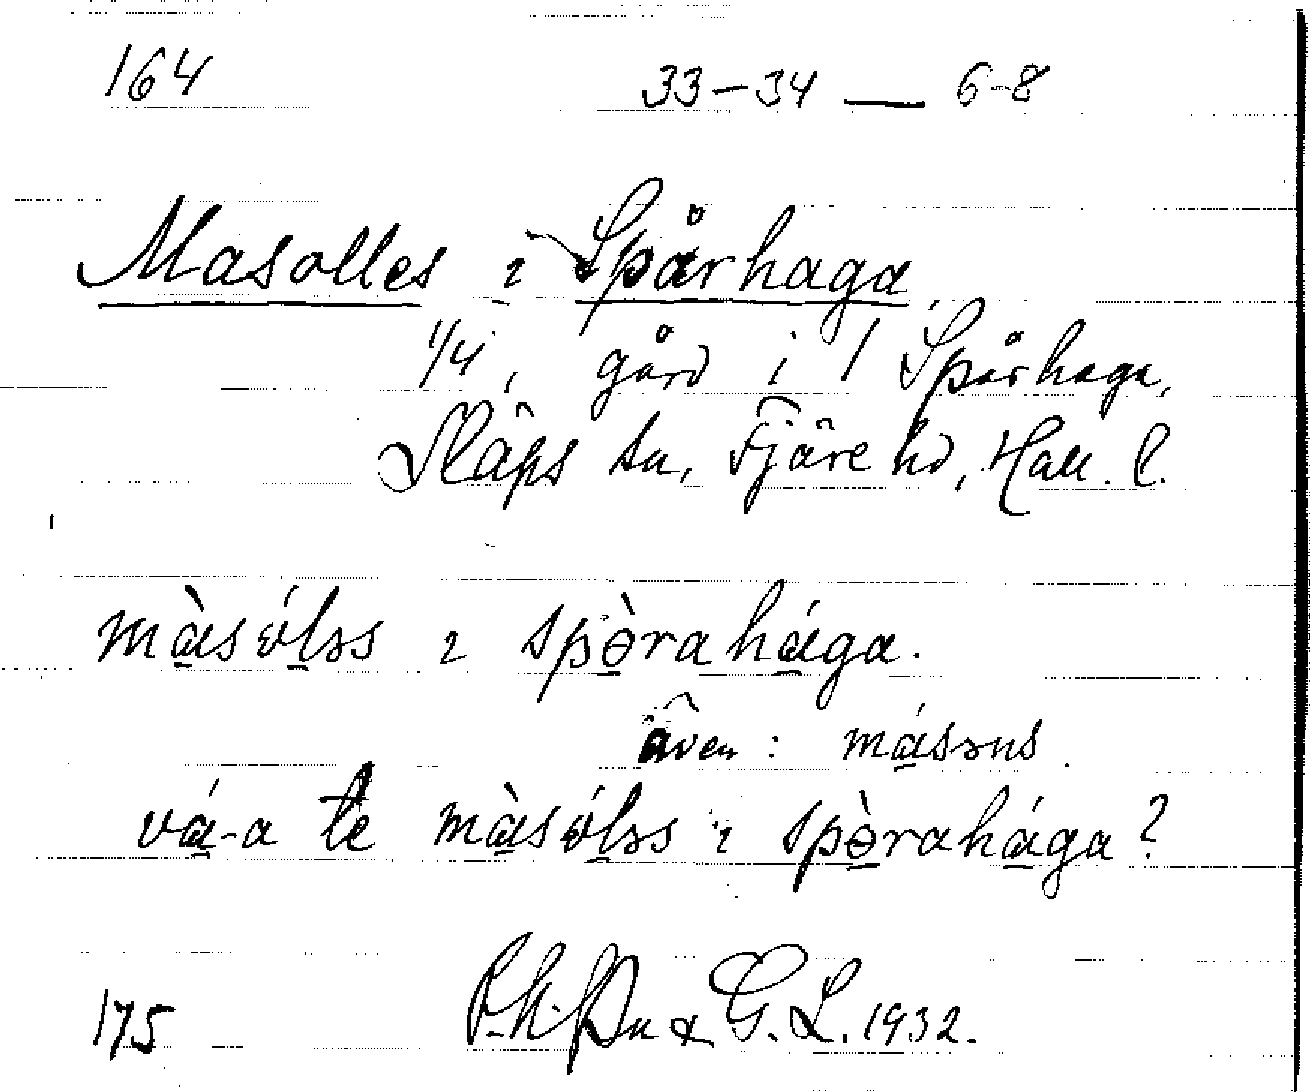 164 33-34 — 6-8
Masolles i Spårhaga
1/4, gård i 1 Spårhaga,
Släps sn, Fjäre hd, Hall. l.
màsóləs ı spòrahága.
även: másəns.
vá-a te màsóləs ı spòrahága?
175 & G. L. 1932.